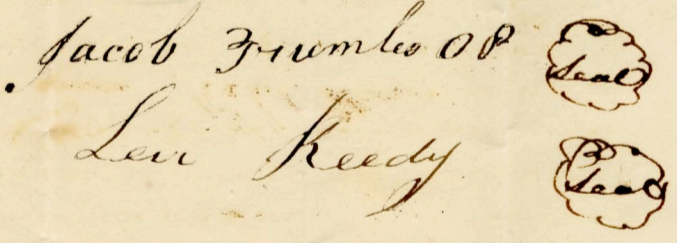 Jacob Frumles OP Seal
Levi Keedy Seal